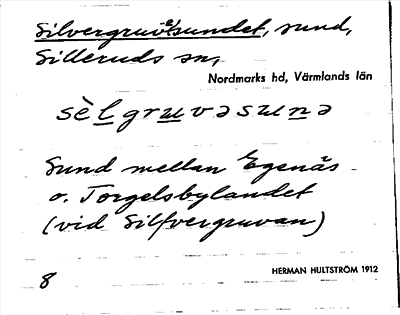 Silvergruv(e)sundet, sund,
Silleruds sn,
Nordmarks hd, Värmlands län
sèlgruvəsunə
Sund mellan Egenäs
o. Torgelsbylandet
(vid Silfvergruvan)
8
HERMAN HULTSTRÖM 1912